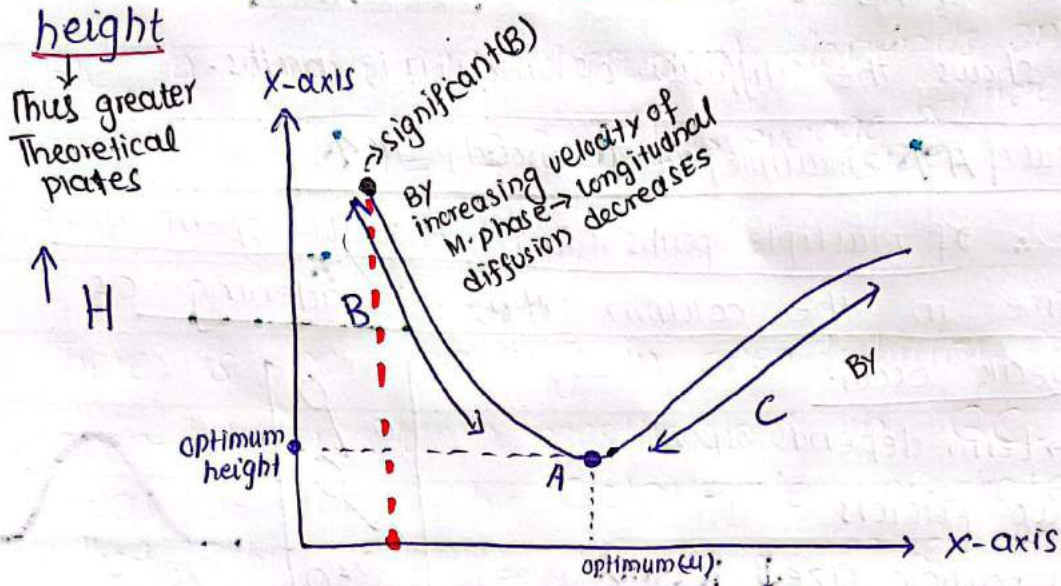 height
Thus greater
Theoretical
plates
X-axis
significant(B)
BY
increasing velocity of
M. phase → longitudinal
diffusion decreases
↑ H
B
optimum
height
A
BY
C
optimum(u)
X-axis